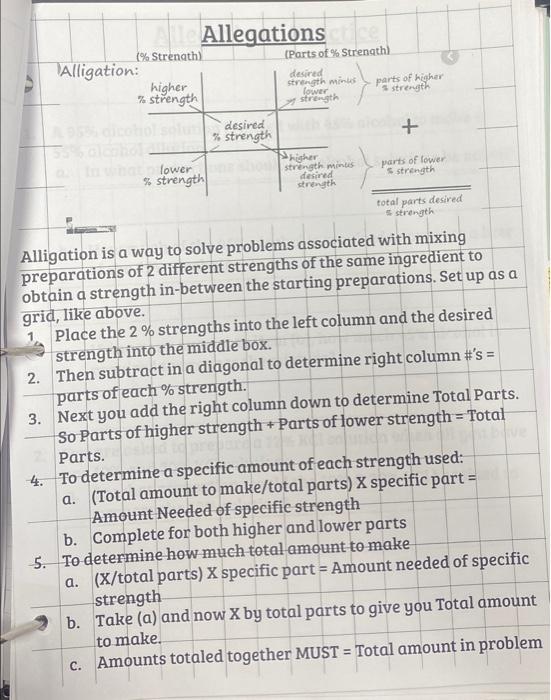 Allegations
(% Strenath)
(Parts of % Strenath)
Alligation:
higher
% strength
desired
strength minus
lower
strength
parts of higher
% strength
desired
% strength
+
lower
% strength
higher
strength minus
desired
strength
parts of lower
% strength
total parts desired
% strength
Alligation is a way to solve problems associated with mixing
preparations of 2 different strengths of the same ingredient to
obtain a strength in-between the starting preparations. Set up as a
grid, like above.
1. Place the 2 % strengths into the left column and the desired
strength into the middle box.
2. Then subtract in a diagonal to determine right column #'s =
parts of each % strength.
3. Next you add the right column down to determine Total Parts.
So Parts of higher strength + Parts of lower strength = Total
Parts.
4. To determine a specific amount of each strength used:
a. (Total amount to make/total parts) X specific part =
Amount Needed of specific strength
b. Complete for both higher and lower parts
5. To determine how much total amount to make
a. (X/total parts) X specific part = Amount needed of specific
strength
b. Take (a) and now X by total parts to give you Total amount
to make.
c. Amounts totaled together MUST = Total amount in problem